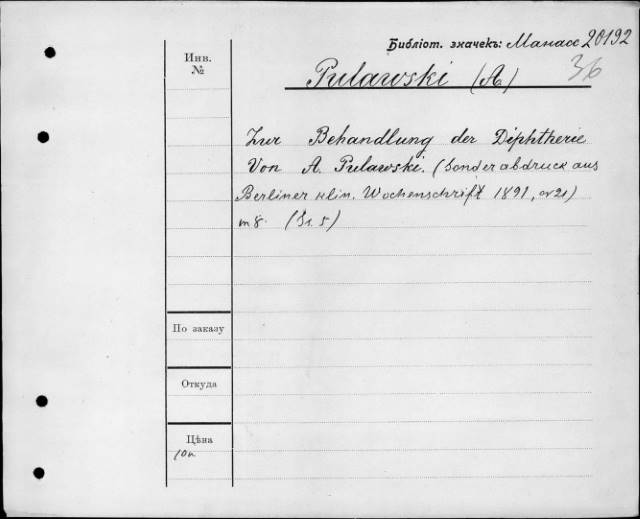 Библіот. значекъ: Манасс 20192
36
Инв.
№
Pulawski (A)
Zur Behandlung der Diphtherie
Von A. Pulawski. (Sonderabdruck aus
Berliner klin. Wochenschrift 1891, nr 21)
in 8.
По заказу
Откуда
Цѣна
10к